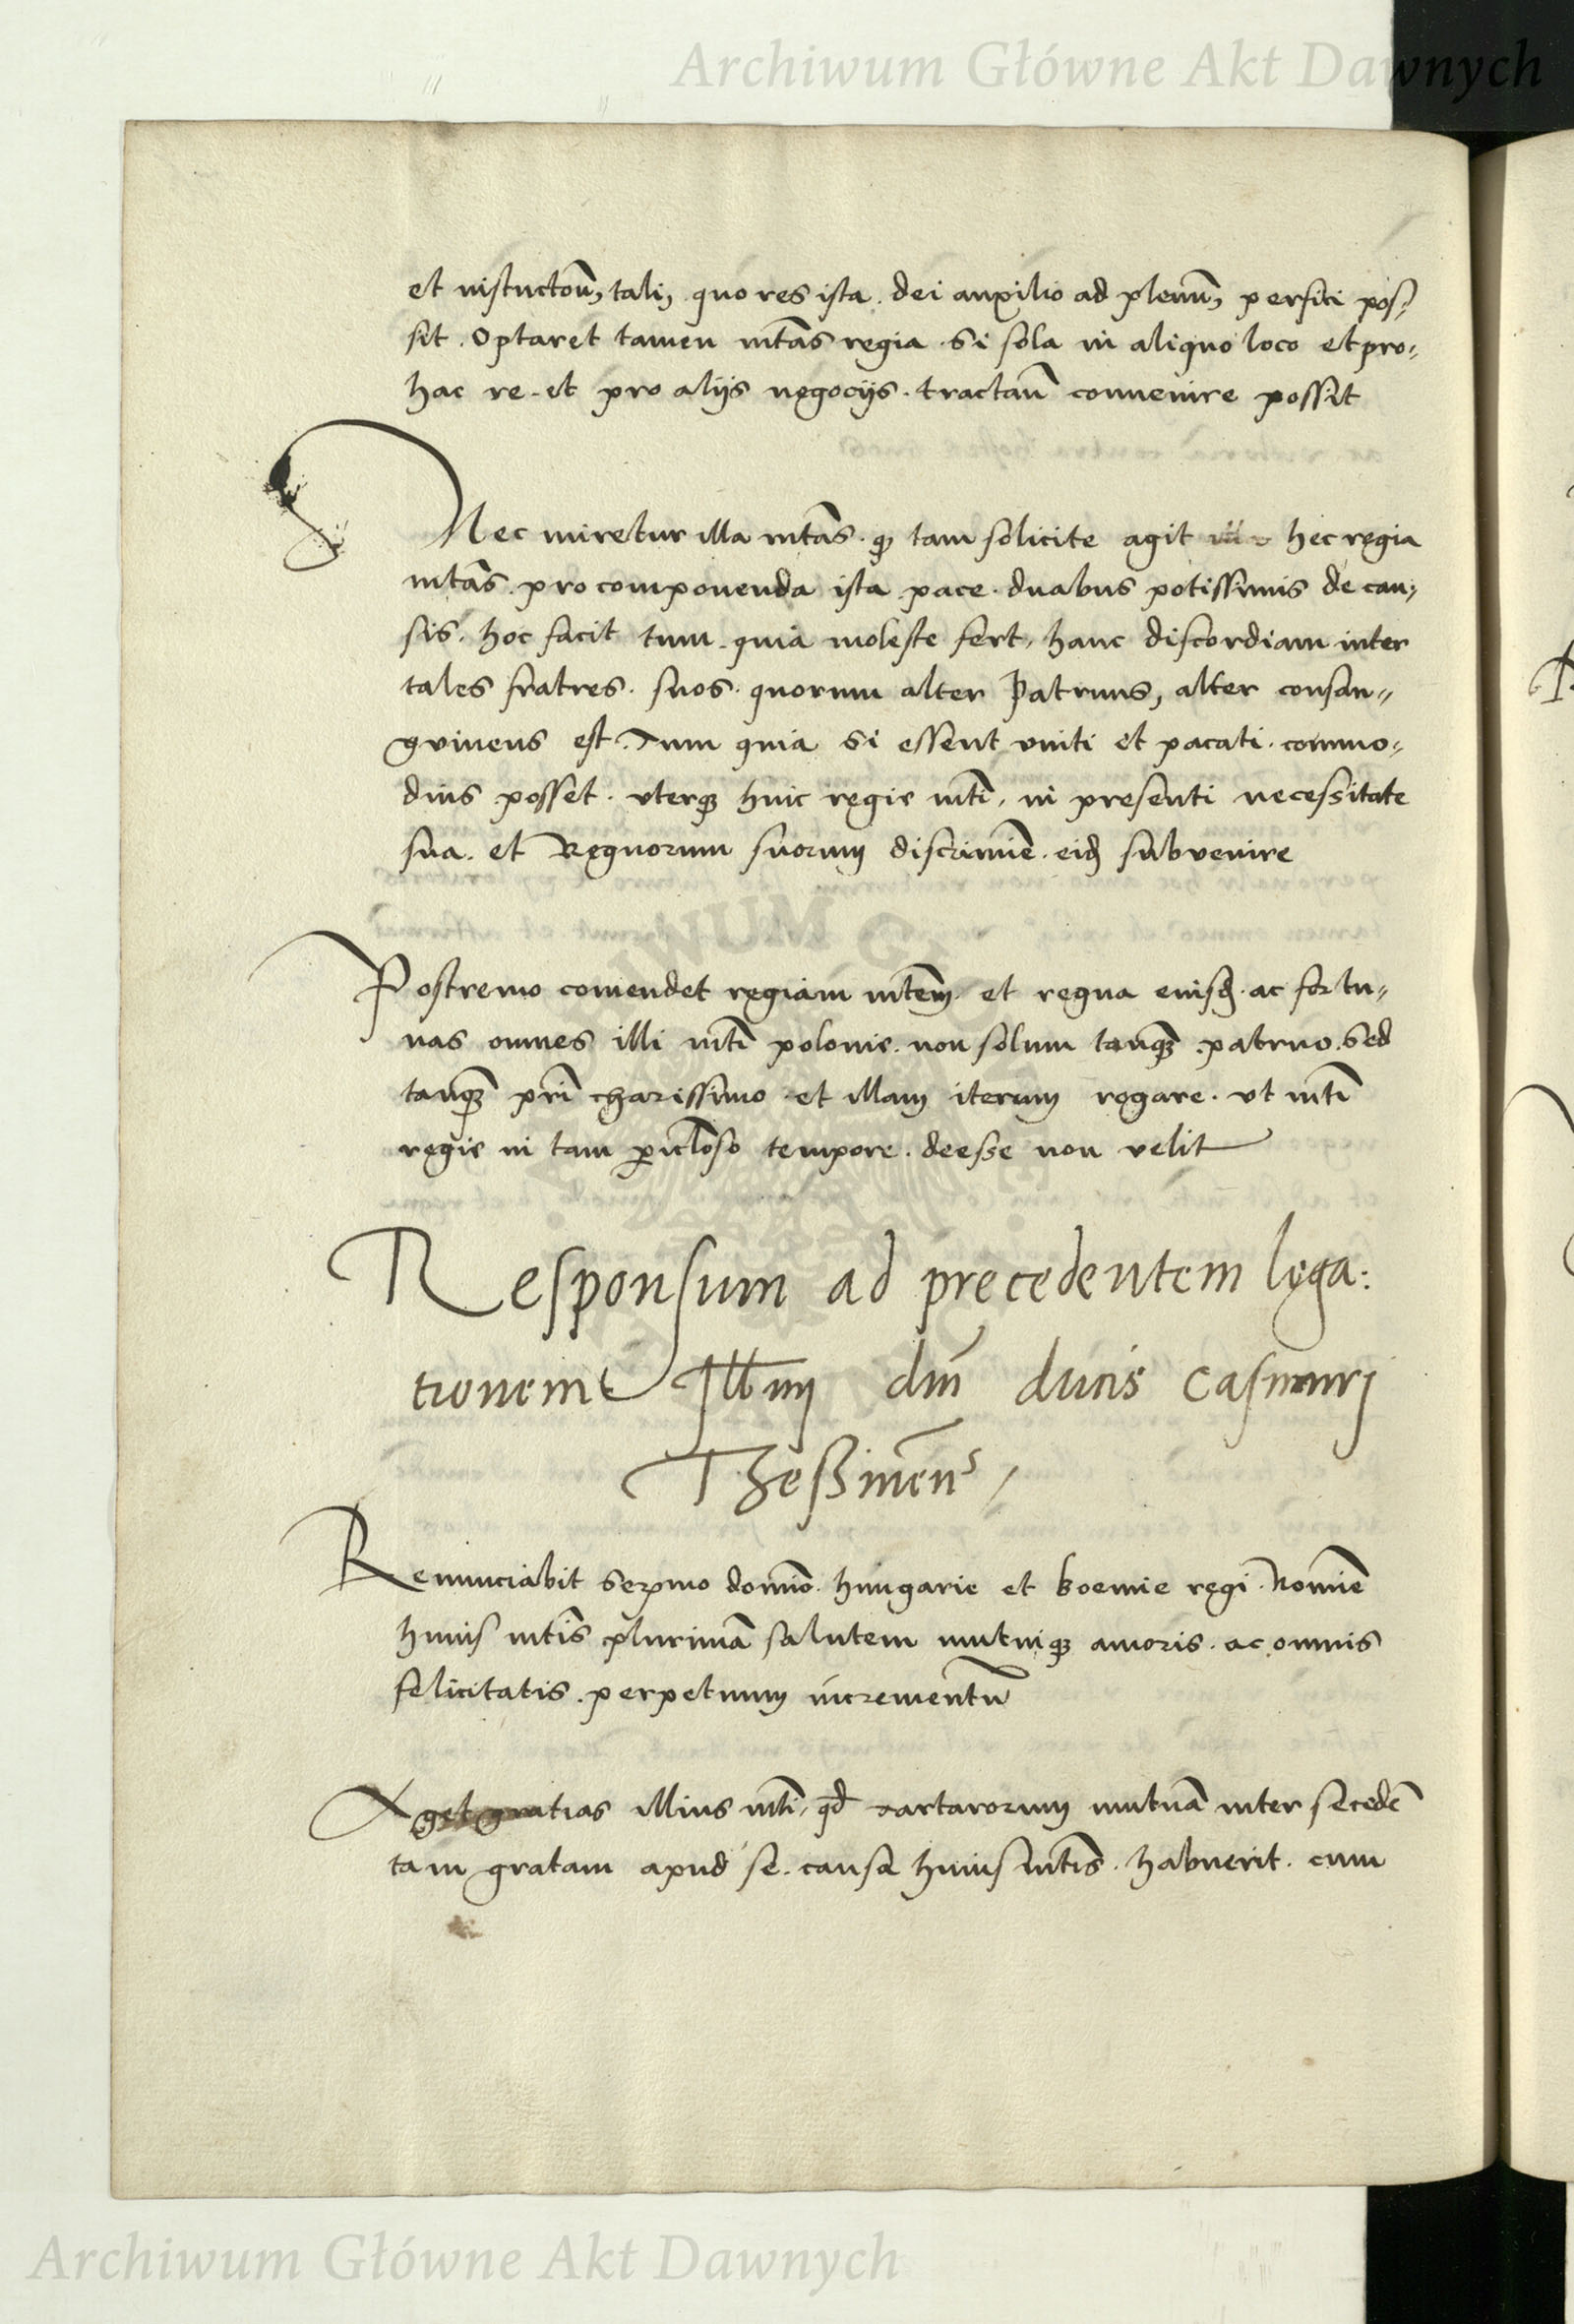 Archiwum Główne Akt Dawnych
et instructōū, tali, quo res ista. dei auxilio ad plenū, perfici pos,
sit. Optaret tamen mtās regia. Si sola in aliquo loco et pro,
hac re. et pro alijs negocijs. tractaū convenire possit
Nec miretur illa mtās. q tam solicite agit hec regia
mtās. pro componenda ista pace. duabus potissimis de cau,
sis. hoc facit tum. quia moleste fert, hanc discordiam inter
tales fratres. suos. quorum alter Patruus, alter consan„
guineus est. Tum quia si essent vniti et pacati. commo,
dius posset. vterq3 huic regie mti, in presenti necessitate
sua. et Regnorum suorum discrimīe. eid subvenire
Postremo comendet regiam mtem. et regna eiusd. ac fortu„
nas omnes illi mti polonie. non solum tanq3 patruo. Sed
tanq3 pri charissimo et illam iterum rogare. vt mti
regie in tam piclōso tempore. deesse non velit
Responsum ad precedentem lega:
tionem Illmi dni ducis Casimiri
Theßinen s /
Renunciabit Serᵐᵒ domīo. hungarie et boemie regi. Nomīe
huius mtis plurimā salutem mutuiq3 amoris. ac omnis
felicitatis. perpetuum incrementū
Aget gratias illius mti, qd Tartarorum mutuā inter se cedē
tam gratam apud se. causa huius mtis. habuerit. cum
Archiwum Główne Akt Dawnych